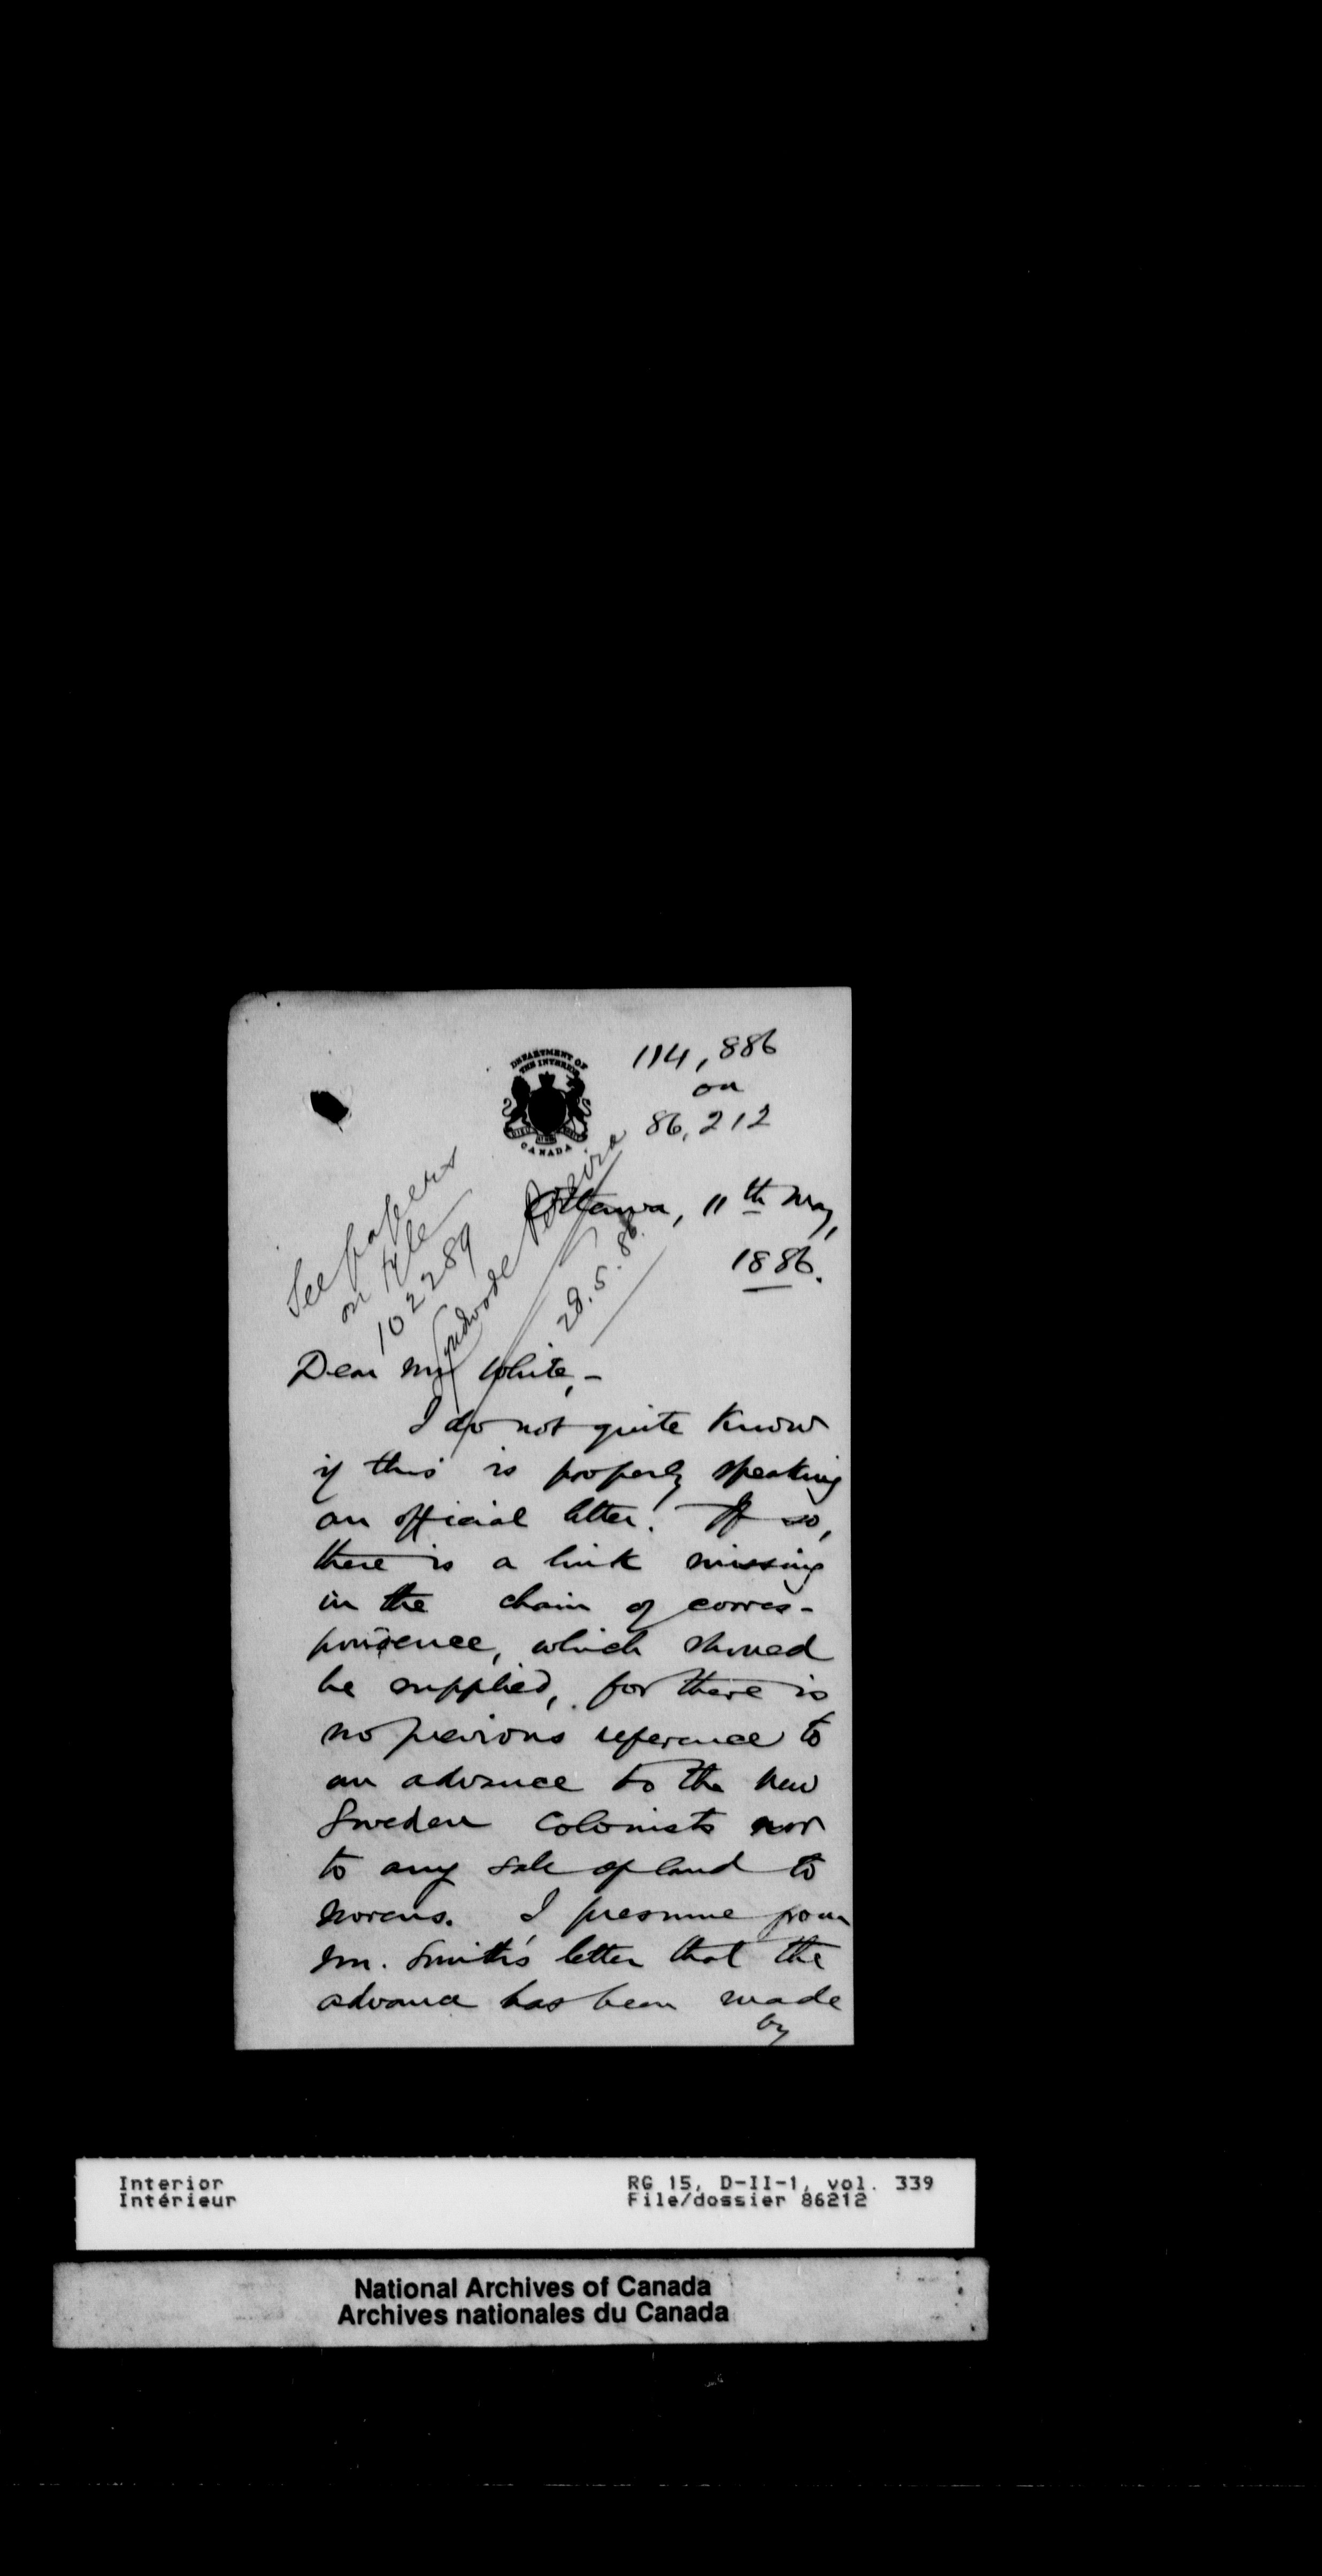 DEPARTMENT OF
THE INTERIOR
CANADA
114,886
on
86,212
Ottawa, 11th May,
1886.
See papers
on file
102289
Lyndwode Pereira
28.5.86
Dear Mr White,-
I do not quite know
if this is properly speaking
an official letter. If so,
there is a link missing
in the chain of corres-
pondence, which should
be supplied, for there is
no previous reference to
an advance to the New
Sweden Colonists nor
to any sale of land to
Norens. I presume from
Mr. Smith's letter that the
advance has been made
by
Interior
Intérieur
RG 15, D-II-1, vol. 339
File/dossier 86212
National Archives of Canada
Archives nationales du Canada